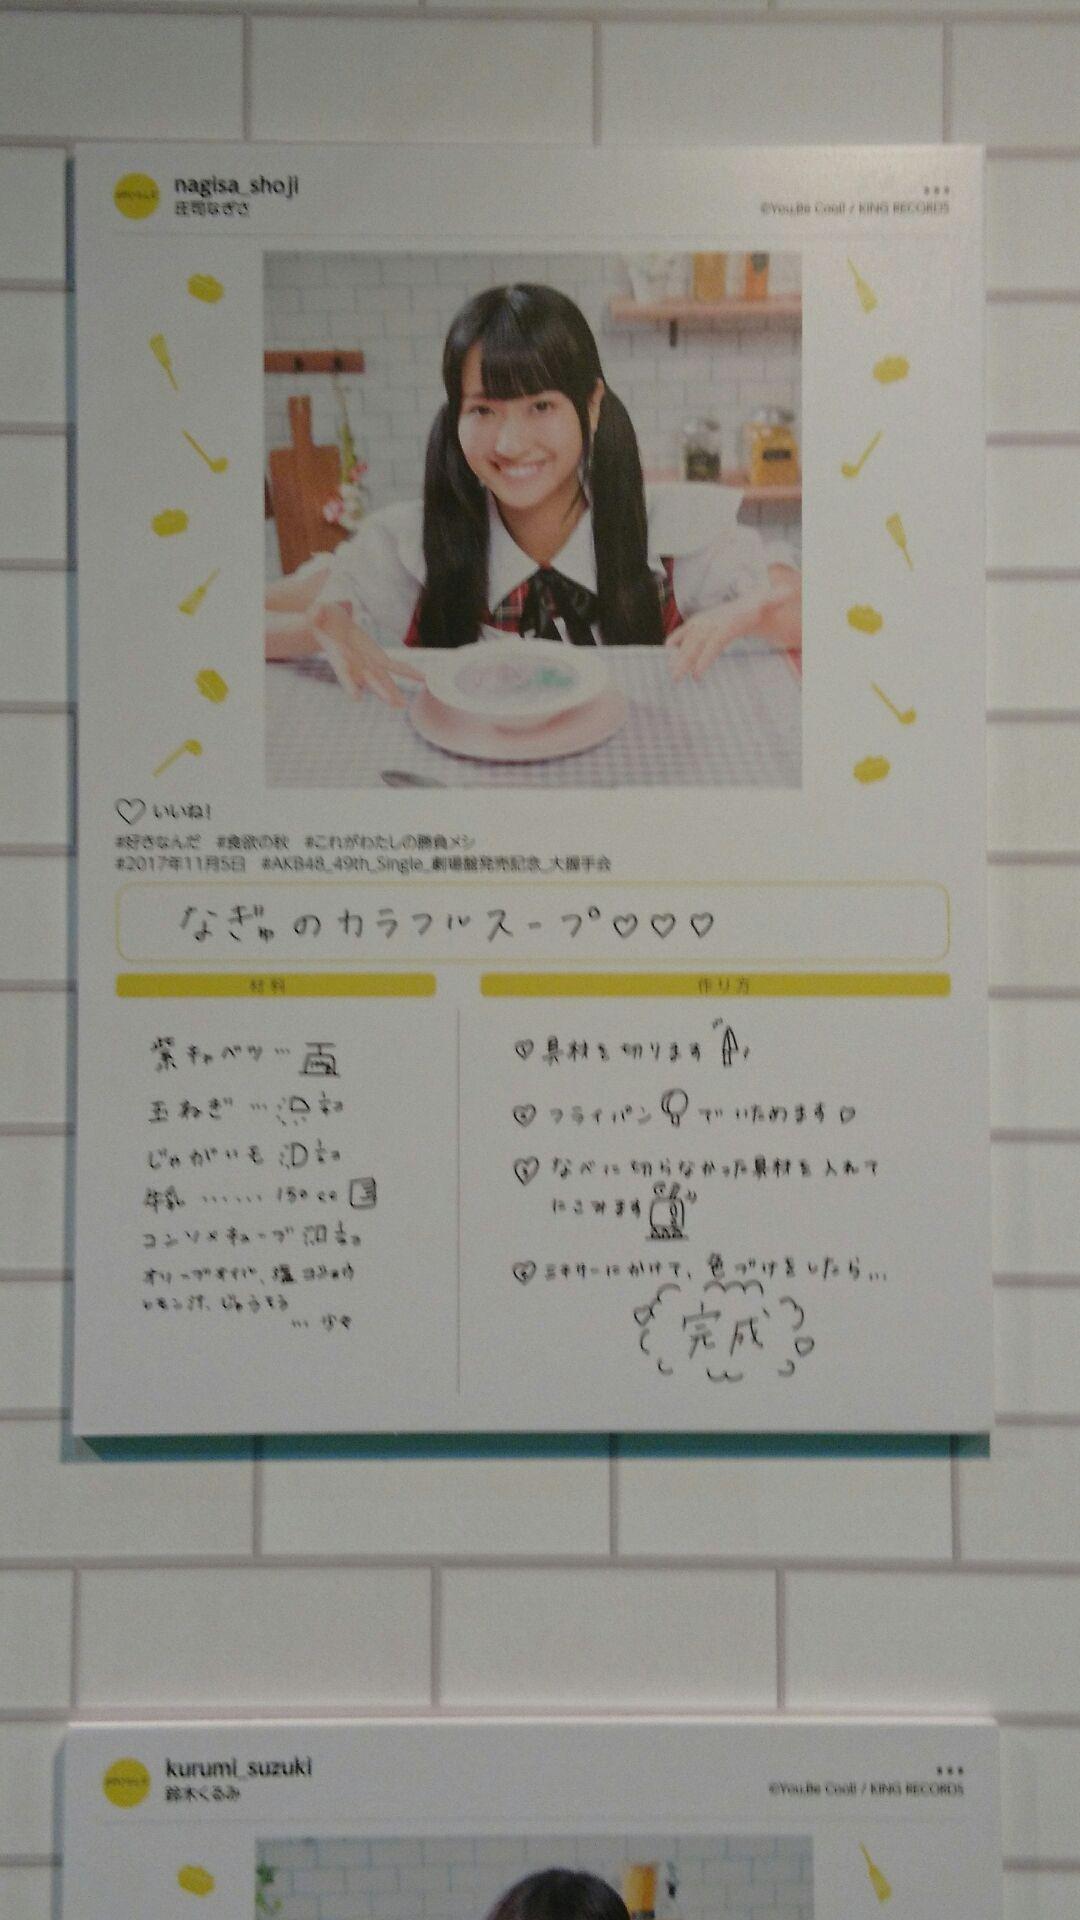 nagisa_shoji
庄司なぎさ
©You,Be Cool! / KING RECORDS
いいね!
#好きなんだ #食欲の秋 #これがわたしの勝負メシ
#2017年11月5日 #AKB48_49th_Single_劇場盤発売記念_大握手会
なぎゅのカラフルスープ♡♡♡
材料
紫キャベツ…
玉ねぎ …
じゃがいも
牛乳 …… 150cc
コンソメキューブ
オリーブオイル、塩コショウ
レモン汁、じゅうそう
… 少々
作り方
① 具材を切ります
② フライパンでいためます♡
③ なべに切らなかった具材を入れて
にこみます
④ ミキサーにかけて、色づけをしたら…
完成
kurumi_suzuki
鈴木くるみ
©You,Be Cool! / KING RECORDS